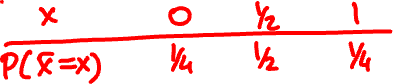 x 0 1/2 1
P(x̄=x) 1/4 1/2 1/4